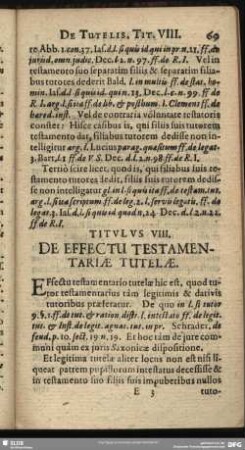 DE TUTELIS. TIT. VIII. 69
re Abb. 1. con. 37. Ias. d. l. si quis id qui in pr. n. 12. ff. de
jurisd. omn. judic. Dec. l. 2. n. 97. ff. de R. I. Vel in
testamento suo separatim filiis & separatim filia-
bus tutores dederit Bald. l. in multis ff. de stat. ho-
min. Ias. d. l. si quis id. quin. 13. Dec. l. 2. n. 99. ff. de
R. I. arg. l. si ita ff. de lib. & posthum. l. Clement. ff. de
hered. inst. Vel de contraria voluntate testatoris
constet: Hisce casibus is, qui filiis suis tutorem
testamento dat, filiabus tutorem dedisse non in-
telligitur arg. l. Lucius parag. quæsitum ff. de legat.
3. Bart. l. 1 ff de V. S. Dec. d. l. 2. n. 98 ff. de R. I.
Tertiò scire licet, quod is, qui filiabus suis te-
stamento tutores dedit, filiis suis tutorem dedis-
se non intelligatur gl. in l. si quis ita ff. de testam. tut.
arg. l. si ita scriptum ff. de leg. 2. l. servis legatis. ff. de
legat. 3. Ias. d. l. si quis id quod n. 14. Dec. d. l. 2. n. 21.
ff. de R. I.
TITULUS VIII.
DE EFFECTU TESTAMEN-
TARIÆ TUTELÆ.
Effectο testamentario tutelæ hic est, quod tu-
tor testamentarius tàm legitimis & dativis
tutoribus præferatur. De quo in l. si tutor
9. §. 1. ff. de tut. & ration. distr. l. intestato ff. de legit.
tut. & Inst. de legit. agnat. tut. in pr. Schrader. de
feud. p. 10. sect. 19. n. 19. Et hoc tàm de jure com-
muni quàm ex juris Saxonicæ dispositione.
Et legitimæ tutelæ aliter locus non est nisi li-
queat patrem pupillorum intestatus decessisse &
in testamento suo filiis suis impuberibus nullos
E 3 tuto-